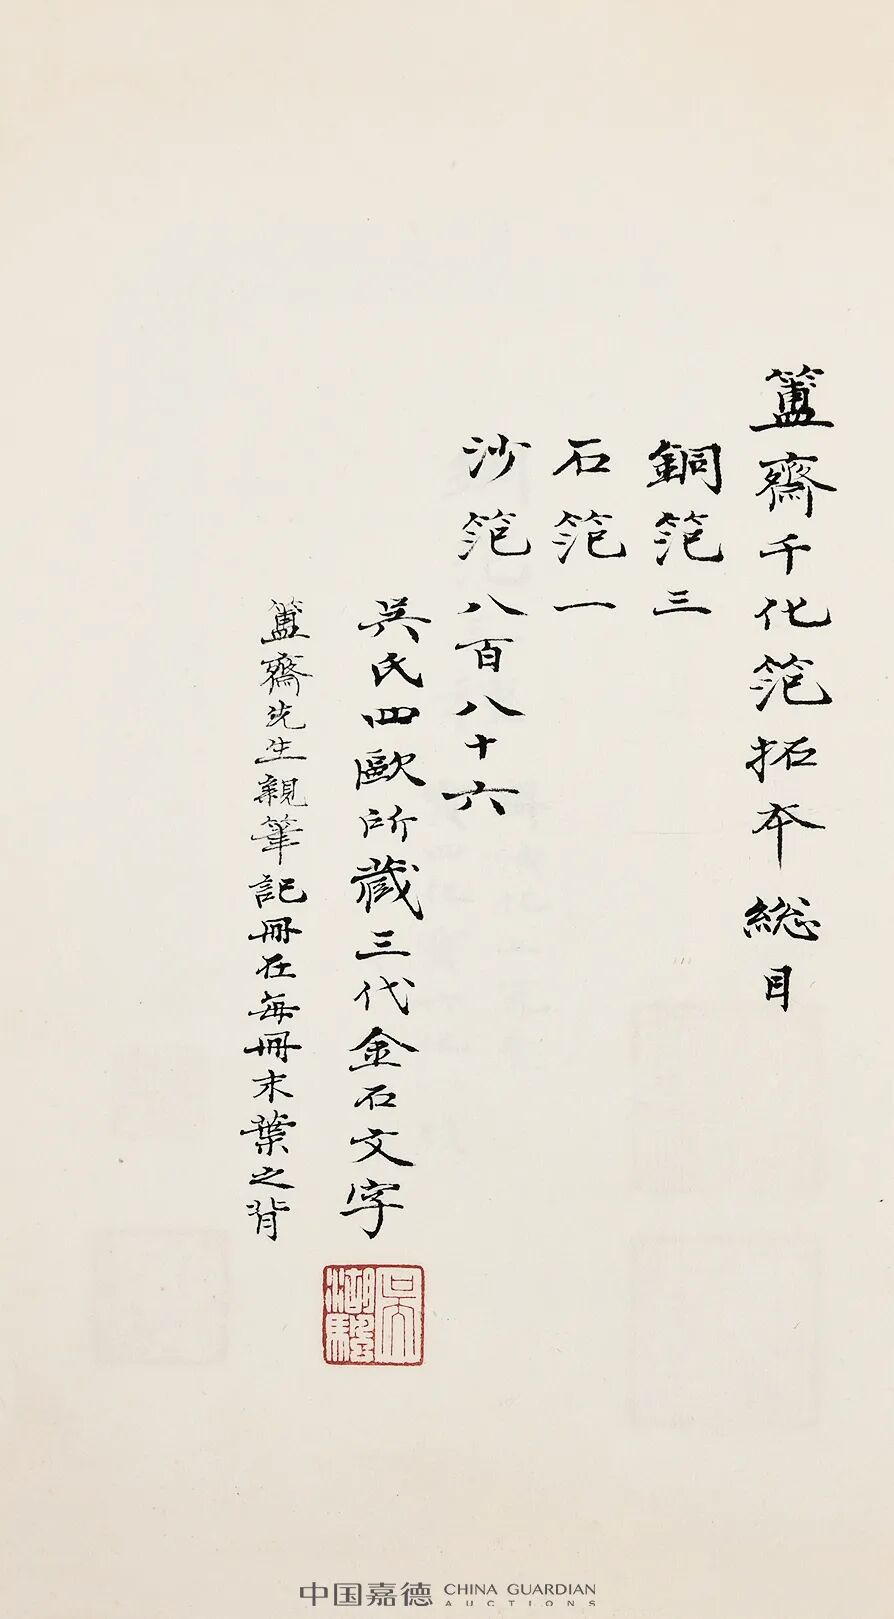 簠齋千化笵拓本総目
銅笵三
石笵一
沙笵八百八十六
吳氏四歐所藏三代金石文字
簠齋先生親筆記冊在每冊末葉之背
吳湖驋
中国嘉德 CHINA GUARDIAN AUCTIONS